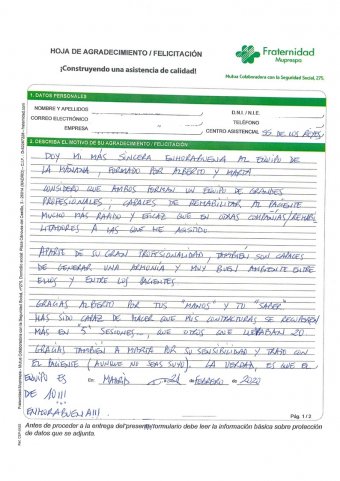 HOJA DE AGRADECIMIENTO / FELICITACIÓN
¡Construyendo una asistencia de calidad!
Fraternidad
Muprespa
Mutua Colaboradora con la Seguridad Social, 275.
1. DATOS PERSONALES
NOMBRE Y APELLIDOS
D.N.I. / N.I.E.
CORREO ELECTRÓNICO
TELÉFONO
EMPRESA
CENTRO ASISTENCIAL SS DE LOS REYES
2. DESCRIBA EL MOTIVO DE SU AGRADECIMIENTO / FELICITACIÓN
DOY MI MÁS SINCERA ENHORABUENA AL EQUIPO DE
LA MAÑANA FORMADO POR ALBERTO Y MARTA
CONSIDERO QUE AMBOS FORMAN UN EQUIPO DE GRANDES
PROFESIONALES, CAPACES DE REHABILITAR AL PACIENTE
MUCHO MAS RAPIDO Y EFICAZ QUE EN OTRAS COMPAÑIAS/REHABI
LITADORES A LAS QUE HE ASISTIDO.
APARTE DE SU GRAN PROFESIONALIDAD TAMBIÉN SON CAPACES
DE GENERAR UNA ARMONIA Y MUY BUEN AMBIENTE ENTRE
ELLOS Y ENTRE LOS PACIENTES.
GRACIAS ALBERTO POR TUS "MANOS" Y TU "SABER"
HAS SIDO CAPAZ DE HACER QUE MIS CONTRACTURAS SE RECUPEREN
MÁS EN "5" SESIONES..., QUE OTROS QUE LLEVABAN 20.
GRACIAS TAMBIEN A MARTA POR SU SENSIBILIDAD Y TRATO CON
EL PACIENTE (AUNQUE NO SEAS SUYO). LA VERDAD, ES QUE EL
EQUIPO ES
DE 10!!!
ENHORABUENA!!!
En MADRID a 21 de FEBRERO de 2020
Pág. 1 / 2
Antes de proceder a la entrega del presente formulario debe leer la información básica sobre protección
de datos que se adjunta.